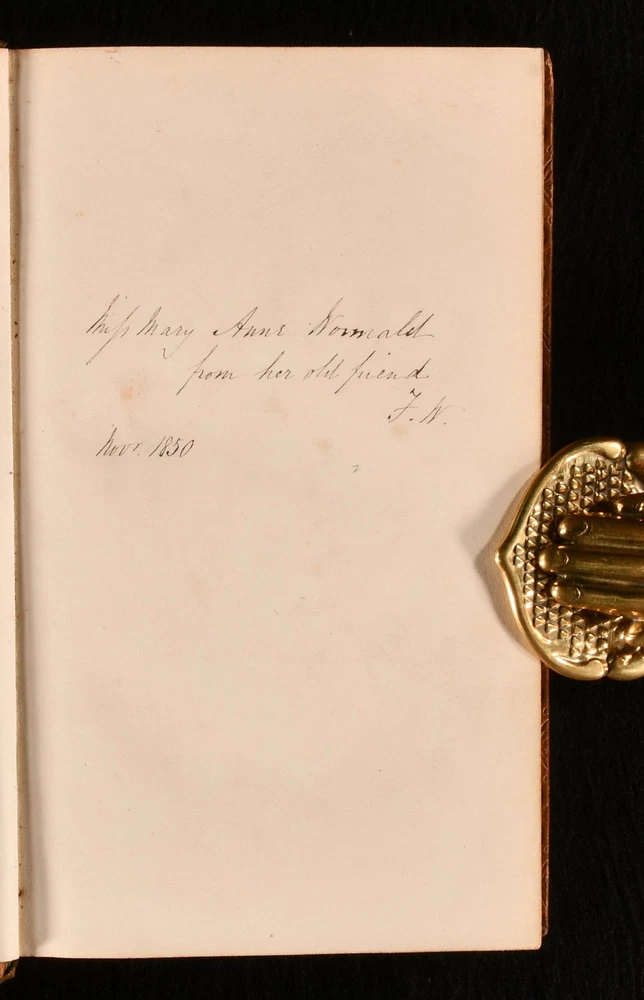 Miss Mary Anne Wormald
from her old friend
F. W.
Novr. 1850